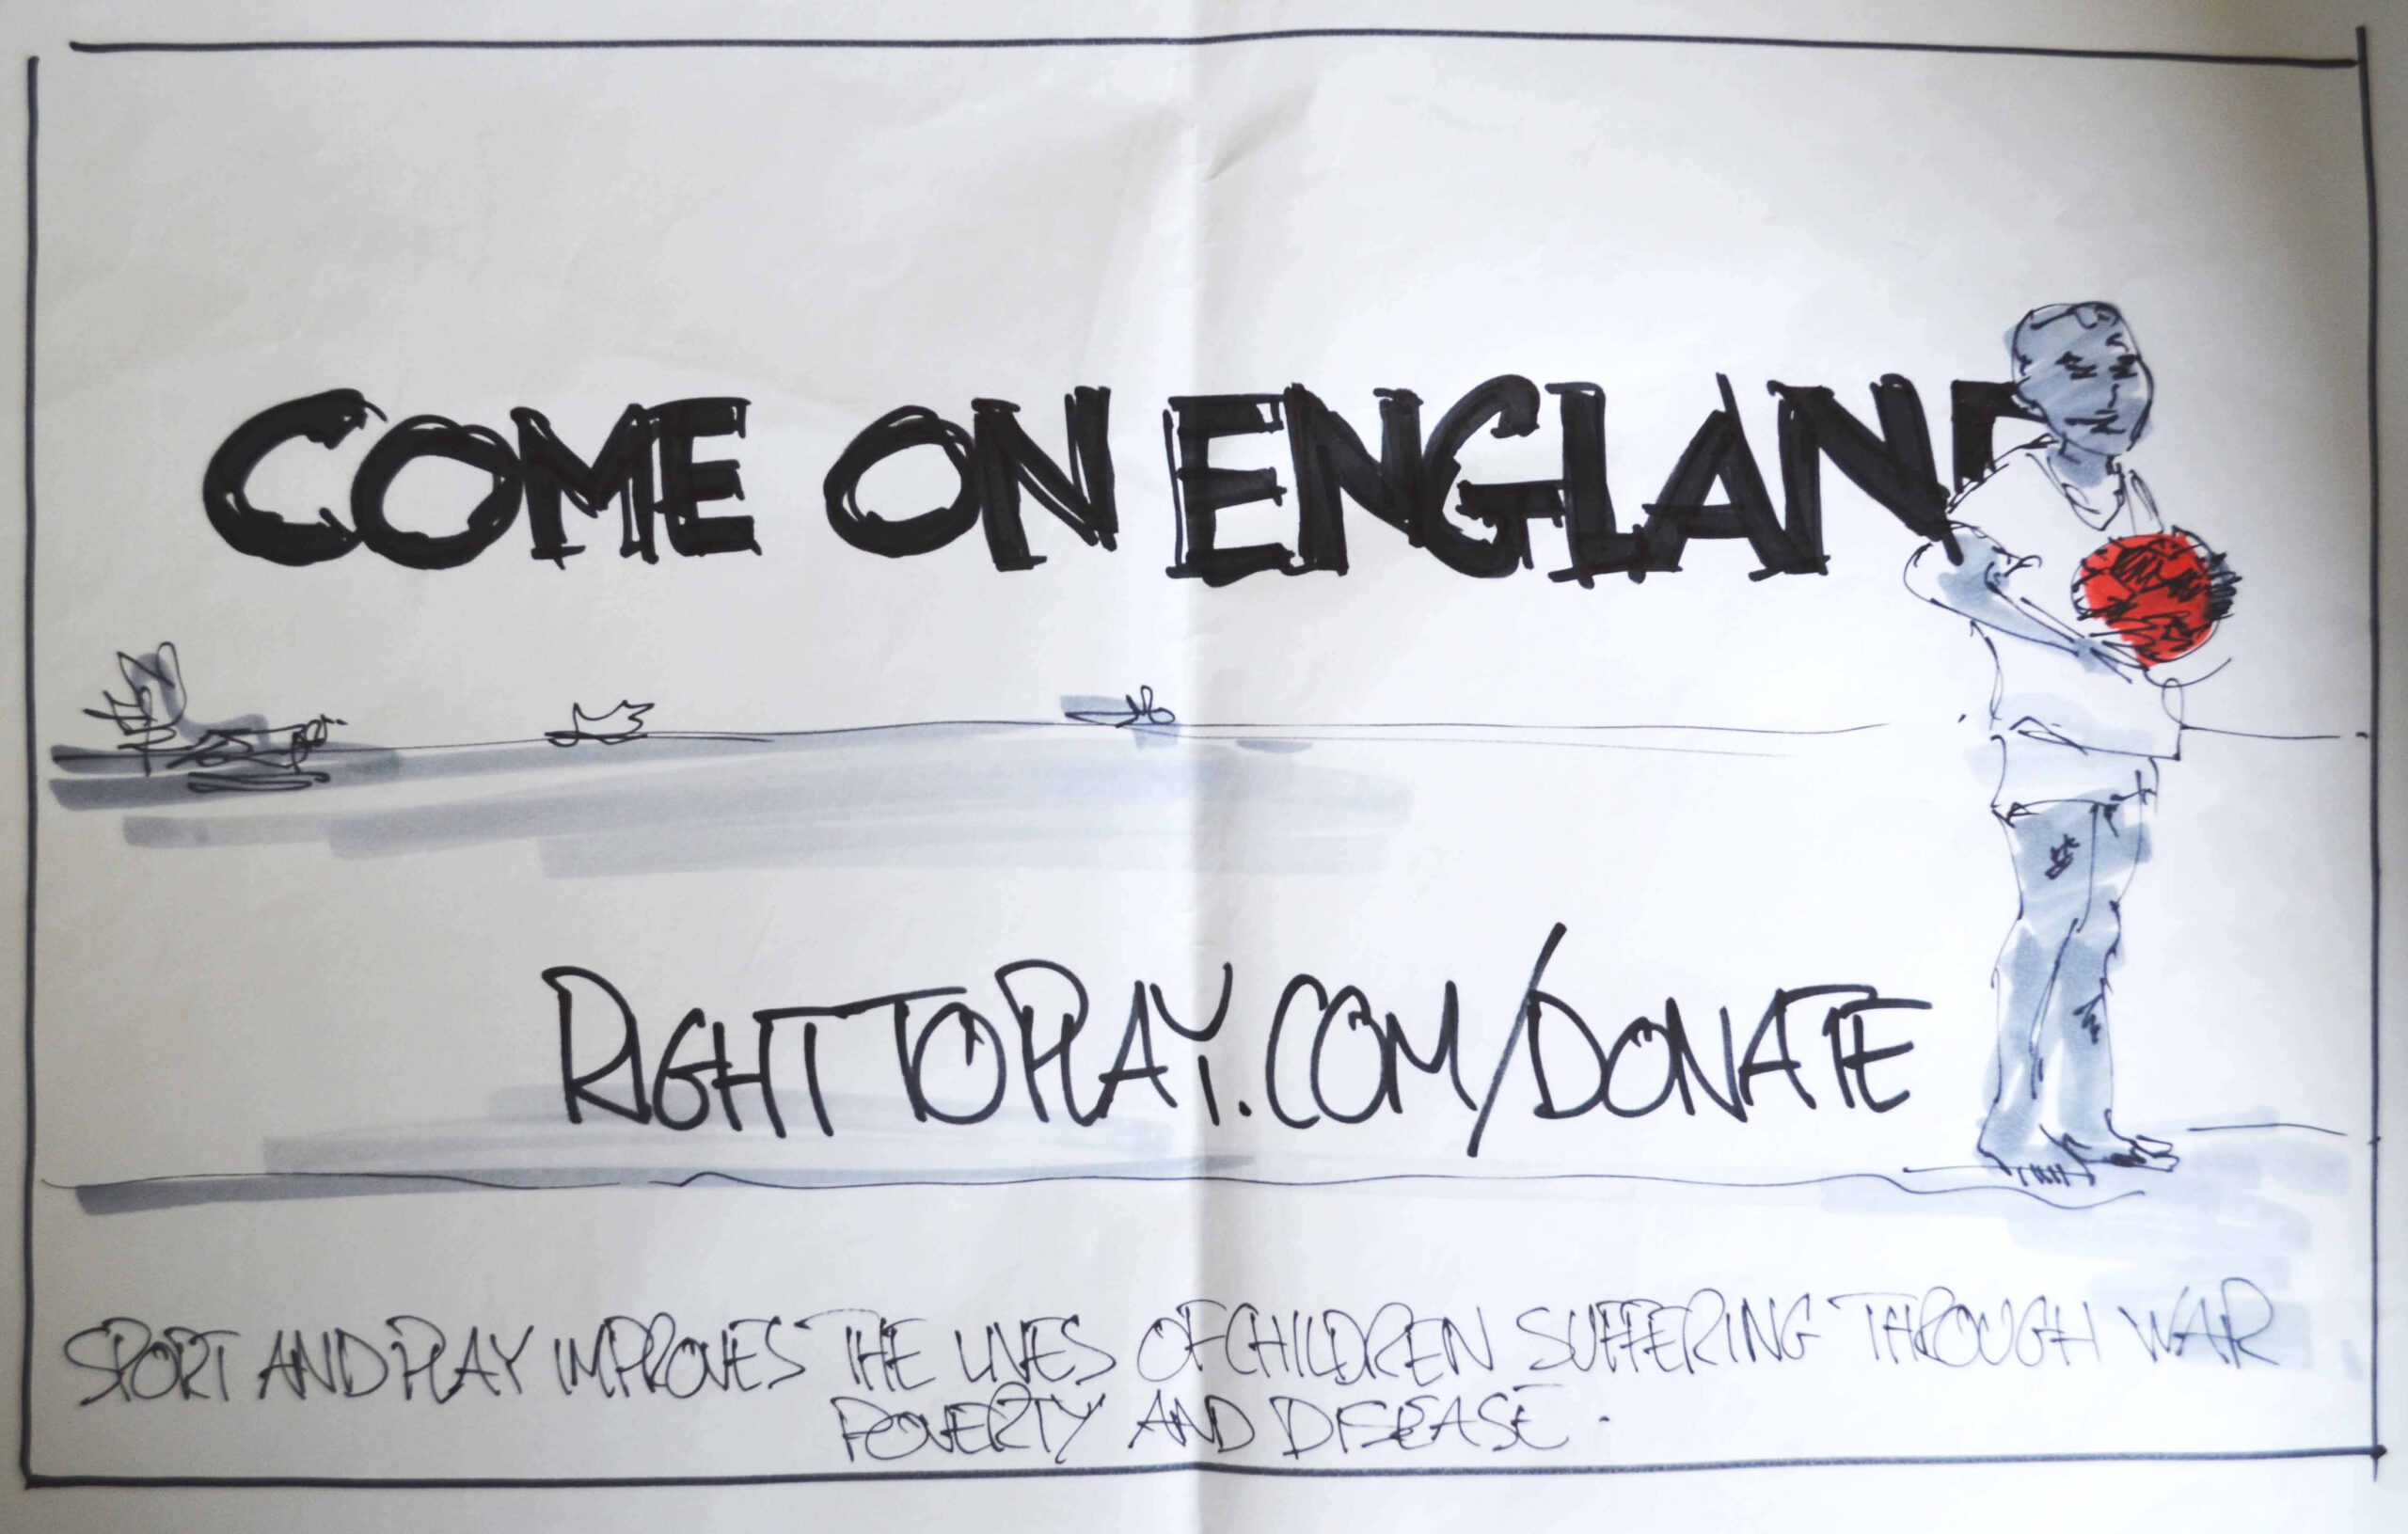 COME ON ENGLAND
RIGHT TO PLAY.COM/DONATE
SPORT AND PLAY IMPROVES THE LIVES OF CHILDREN SUFFERING THROUGH WAR
POVERTY AND DISEASE.